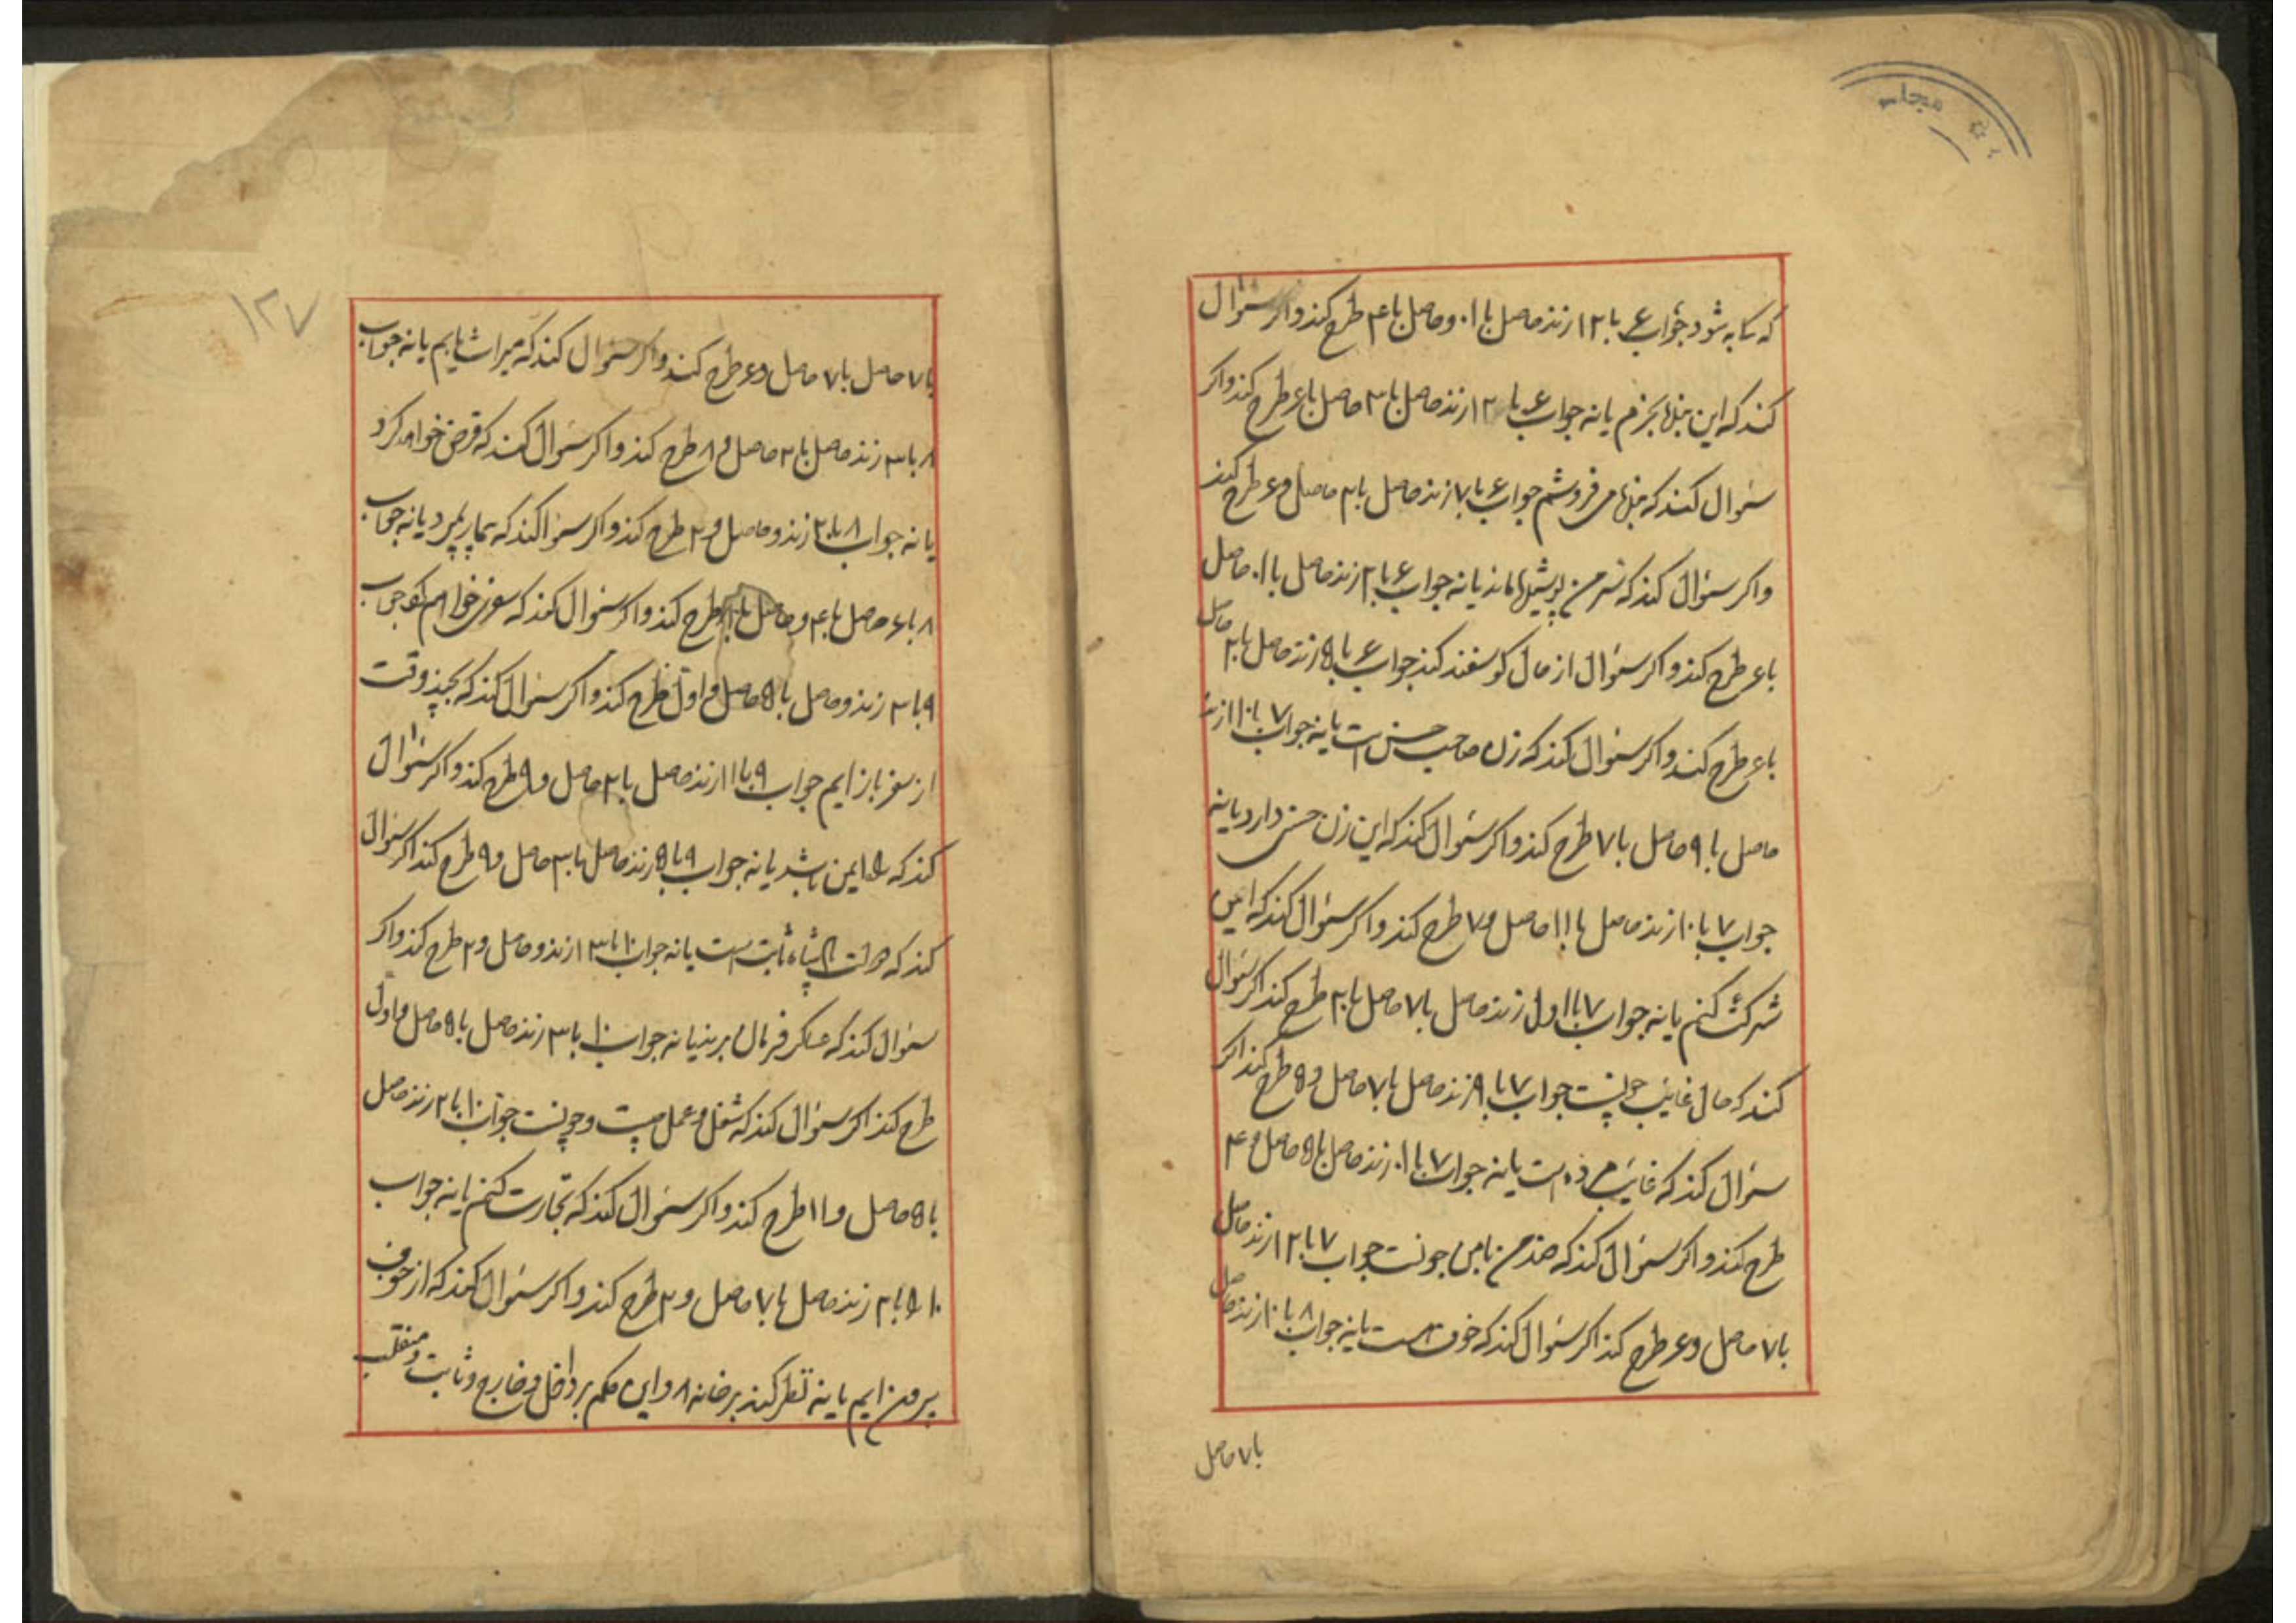 که تابه شود جواب ۶ با ۱۲ زند حاصل با ۱۰ و حاصل با ۴ طرح کند و اکر سئوال
کند که این بخرم یا نه جواب ۶ با ۱۲ زند حاصل با ۲ حاصل با ۶ طرح کند و اکر
سئوال کند که می فروشم جواب ۶ با ۷ زند حاصل با ۲ حاصل و ۶ طرح کند
و اکر سئوال کند که من ماند یا نه جواب ۶ با ۲ زند حاصل با ۱۰ حاصل
با ۶ طرح کند و اکر سئوال از مال کوسفند کند جواب ۶ با ۵ زند حاصل با ۲ حاصل
با ۶ طرح کند و اکر سئوال کند که زن صاحب حسن است یا نه جواب ۷ با ۱۰ زند
حاصل با ۹ حاصل با ۷ طرح کند و اکر سئوال کند که این زن حسن دارد یا نه
جواب ۷ با ۱۰ زند حاصل با ۱۱ حاصل و ۷ طرح کند و اکر سئوال کند که این
شرکت کنم یا نه جواب ۷ با اول زند حاصل با ۷ حاصل با ۲ طرح کند اکر سئوال
کند که حال غایب چونست جواب ۷ با ۹ زند حاصل با ۷ حاصل و ۵ طرح کند اکر
سئوال کند که غایب مرده است یا نه جواب ۷ با ۱۰ زند حاصل با ۵ حاصل و ۴
طرح کند و اکر سئوال کند که من با من چونست جواب ۷ با ۱۲ زند حاصل
با ۷ حاصل و ۶ طرح کند اکر سئوال کند که خوف است یا نه جواب ۸ با ۱۰ زند حاصل
با ۷ حاصل
۱۲۷
با ۷ حاصل با ۷ حاصل و ۶ طرح کند و اکر سئوال کند که میراث یابم یا نه جواب
۸ با ۳ زند حاصل با ۲ حاصل و ۸ طرح کند و اکر سئوال کند که قرض خواهم کرد
یا نه جواب ۸ با ۲ زند و حاصل و ۲ طرح کند و اکر سئوا کند که بیمار بمیرد یا نه جواب
۸ با ۶ حاصل با ۴ و حاصل با ۸ طرح کند و اکر سئوال کند که سفری خواهم کرد جواب
۹ با ۳ زند و حاصل با ۵ حاصل و اول طرح کند و اکر سئوال کند که بچند وقت
از سفر باز ایم جواب ۹ با ۱۱ زند حاصل با ۲ حاصل و ۹ طرح کند و اکر سئوال
کند که راه ایمن باشد یا نه جواب ۹ با ۵ زند حاصل با ۳ حاصل و ۹ طرح کند اکر سئوال
کند که دولت ثابت است یا نه جواب ۱۰ با ۱۳ زند و حاصل و ۲ طرح کند و اکر
سئوال کند که عسکر فرمان برند یا نه جواب ۱۰ با ۳ زند حاصل با ۵ حاصل و اول
طرح کند اکر سئوال کند که شغل و عمل چیست و چونست جواب ۱۰ با ۲ زند حاصل
با ۵ حاصل و ۱۱ طرح کند و اکر سئوال کند که تجارت کنم یا نه جواب
۱۰ با ۲ زند حاصل با ۷ حاصل و ۲ طرح کند و اکر سئوال کند که از خوف
بیرون ایم یا نه نظر کند بر خانه ۸ و این حکم بر داخل و خارج و ثابت و منقلب